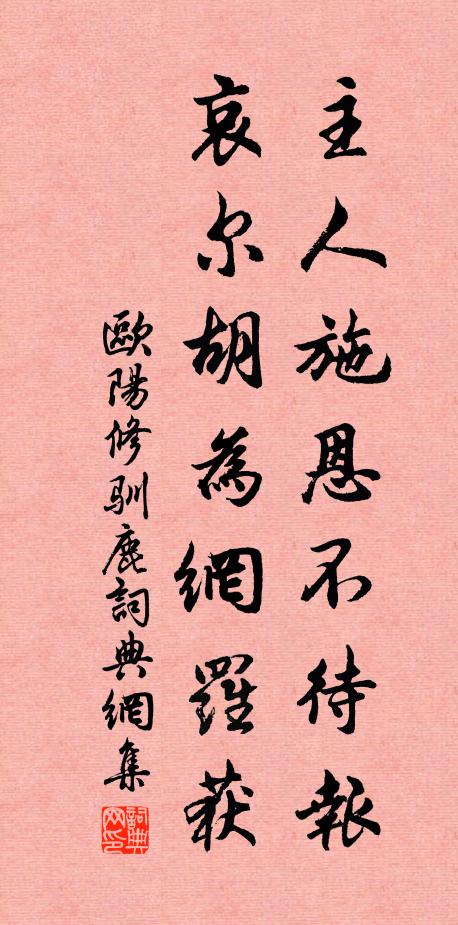 主人施恩不待報
哀尔胡為網羅获
歐陽修馴鹿詞典網集
詞典網印